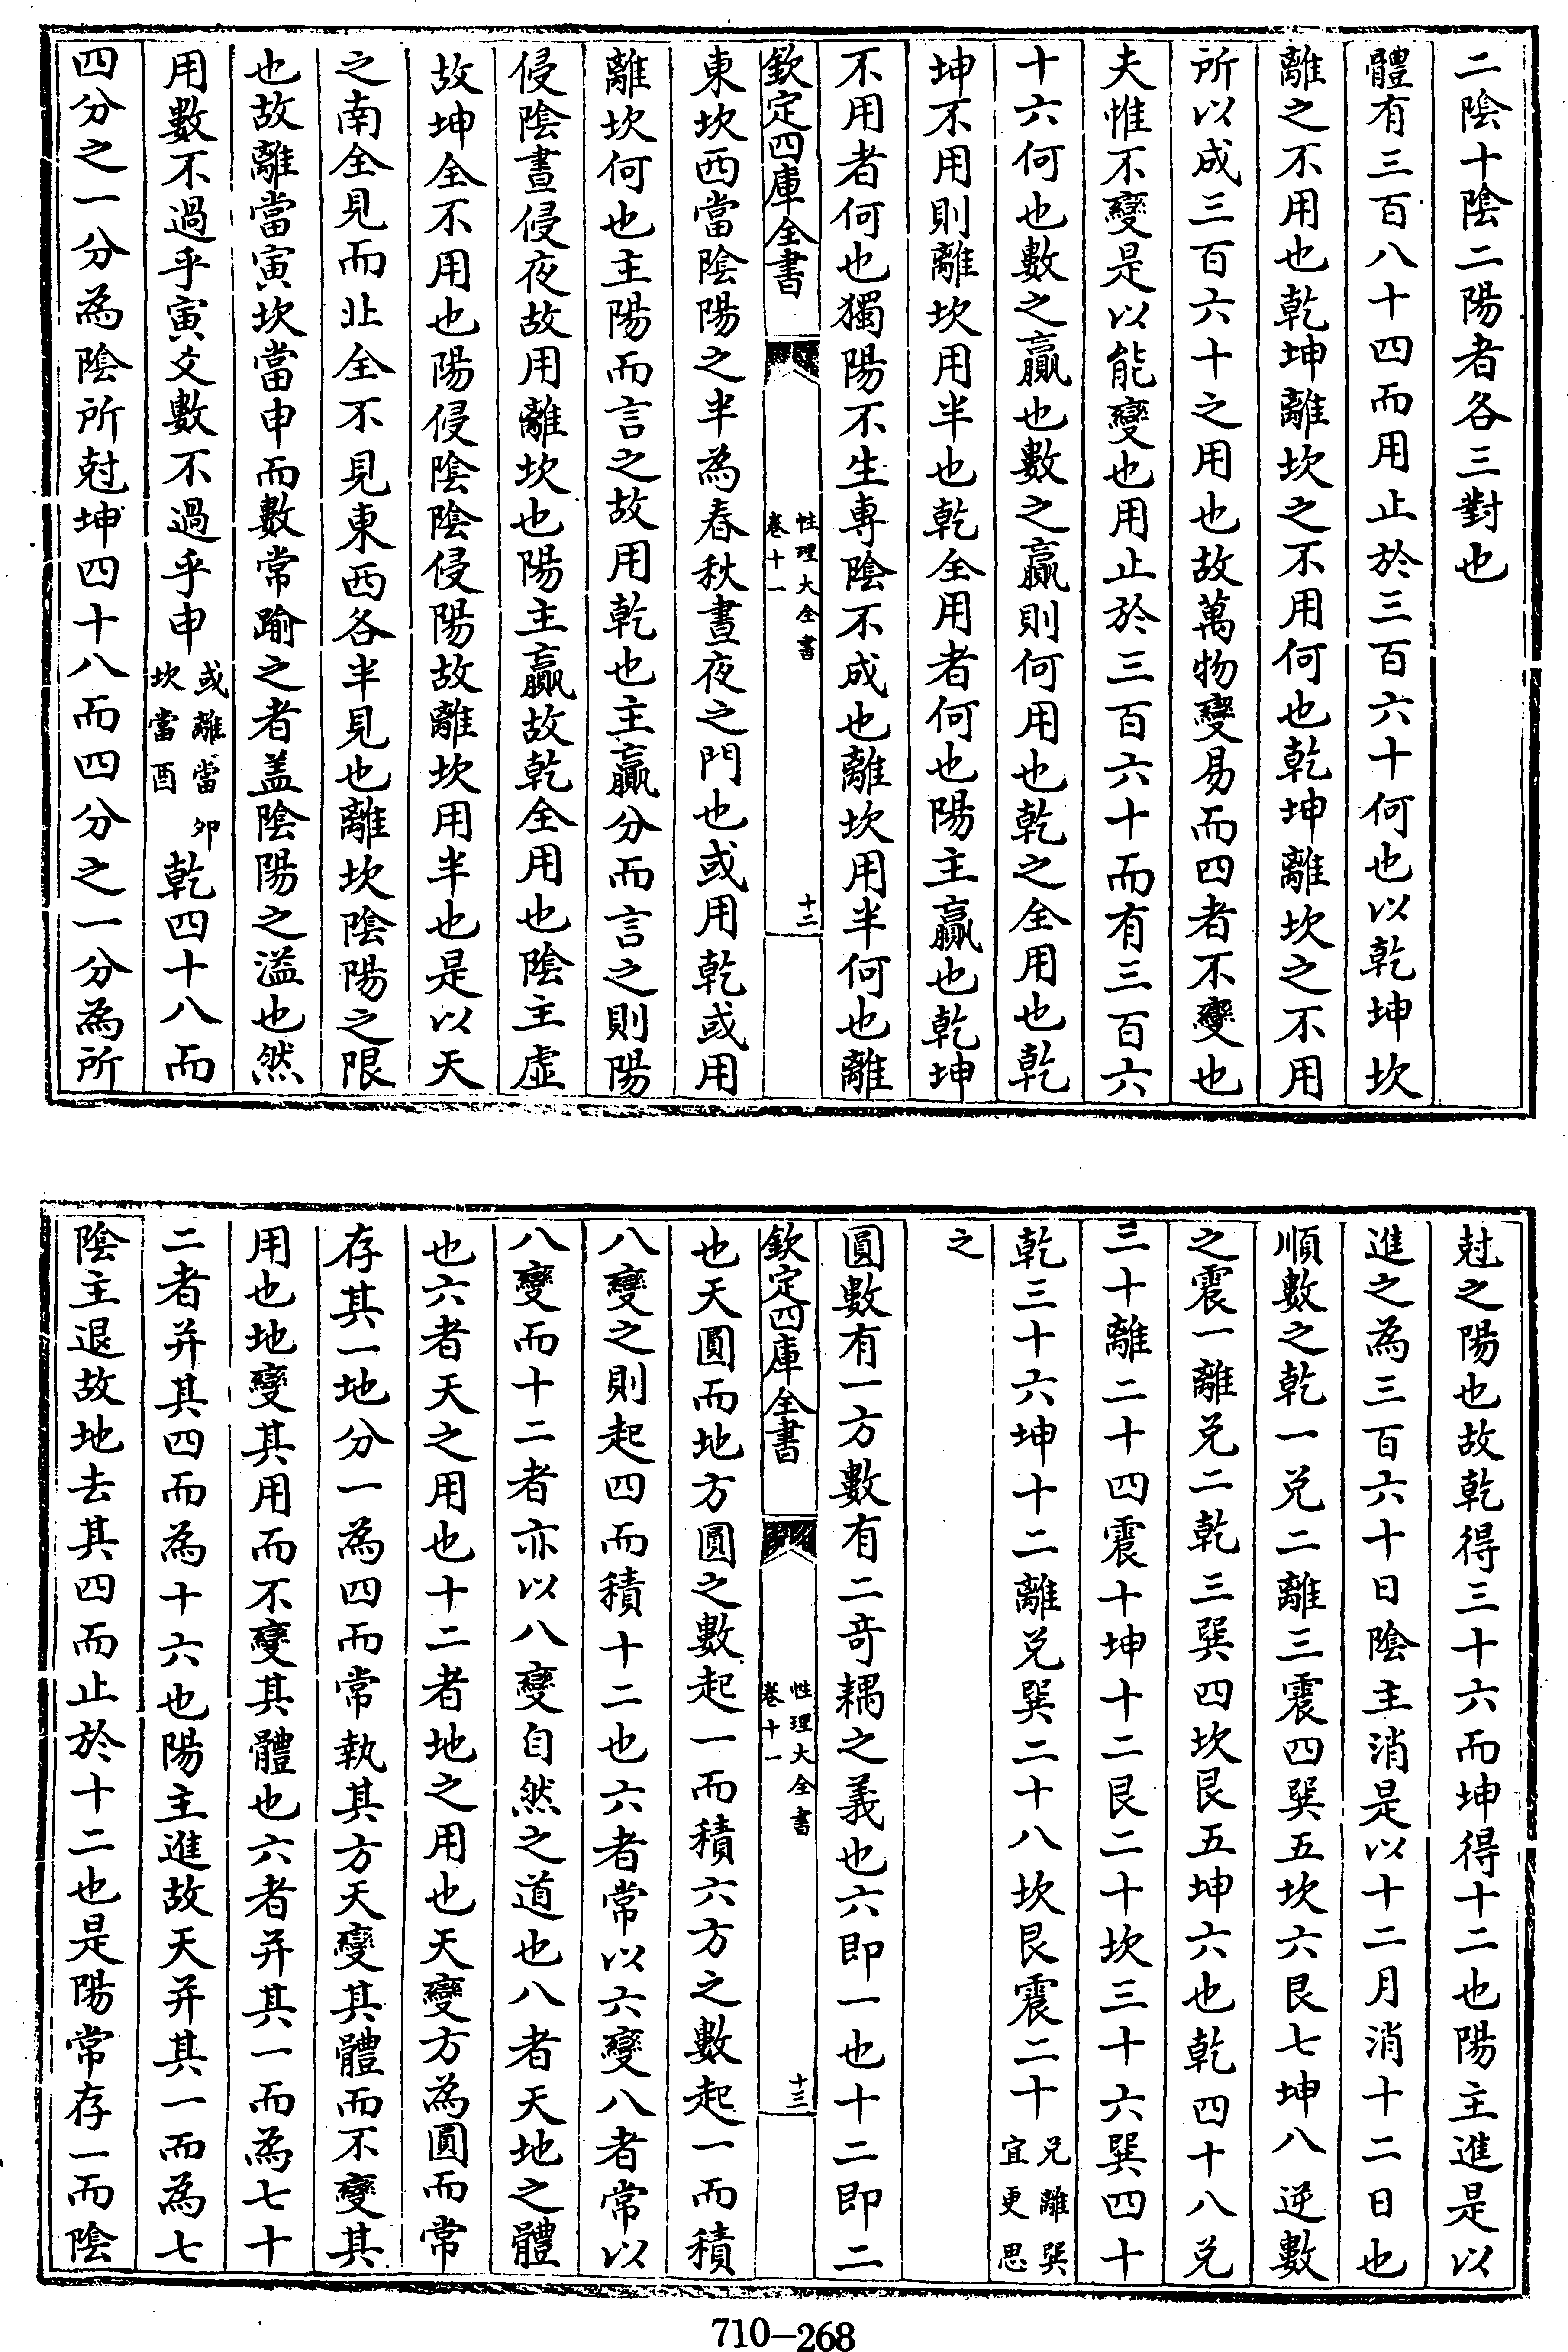 二陰十陰二陽者各三對也
體有三百八十四而用止於三百六十何也以乾坤坎
離之不用也乾坤離坎之不用何也乾坤離坎之不用
所以成三百六十之用也故萬物變易而四者不變也
夫惟不變是以能變也用止於三百六十而有三百六
十六何也數之贏也數之贏則何用也乾之全用也乾
坤不用則離坎用半也乾全用者何也陽主贏也乾坤
不用者何也獨陽不生専陰不成也離坎用半何也離
欽定四庫全書
性理大全書
卷十一
十二
東坎西當陰陽之半為春秋晝夜之門也或用乾或用
離坎何也主陽而言之故用乾也主贏分而言之則陽
侵陰晝侵夜故用離坎也陽主贏故乾全用也陰主虛
故坤全不用也陽侵陰陰侵陽故離坎用半也是以天
之南全見而北全不見東西各半見也離坎陰陽之限
也故離當寅坎當申而數常踰之者盖陰陽之溢也然
用數不過乎寅爻數不過乎申或離當卯坎當酉乾四十八而
四分之一分為陰所尅坤四十八而四分之一分為所
尅之陽也故乾得三十六而坤得十二也陽主進是以
進之為三百六十日陰主消是以十二月消十二日也
順數之乾一兑二離三震四巽五坎六艮七坤八逆數
之震一離兑二乾三巽四坎艮五坤六也乾四十八兑
三十離二十四震十坤十二艮二十坎三十六巽四十
乾三十六坤十二離兑巽二十八坎艮震二十兑離巽宜更思
之
圓數有一方數有二竒耦之義也六即一也十二即二
欽定四庫全書
性理大全書
卷十一
十三
也天圓而地方圓之數起一而積六方之數起一而積
八變之則起四而積十二也六者常以六變八者常以
八變而十二者亦以八變自然之道也八者天地之體
也六者天之用也十二者地之用也天變方為圓而常
存其一地分一為四而常執其方天變其體而不變其
用也地變其用而不變其體也六者并其一而為七十
二者并其四而為十六也陽主進故天并其一而為七
陰主退故地去其四而止於十二也是陽常存一而陰
710-268